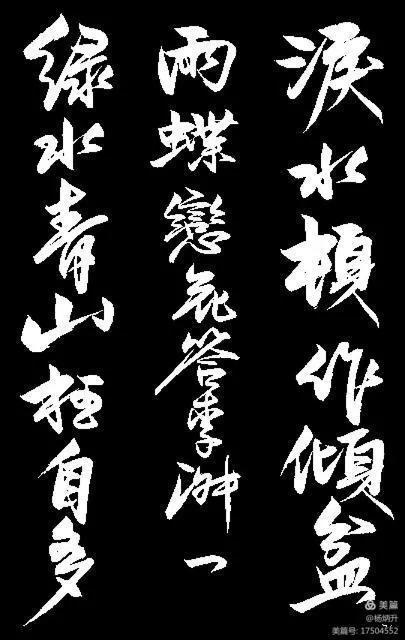 淚水頓作傾盆
雨蝶戀花答李淑一
綠水青山枉自多
美篇
@杨炳升
美篇号: 17504552